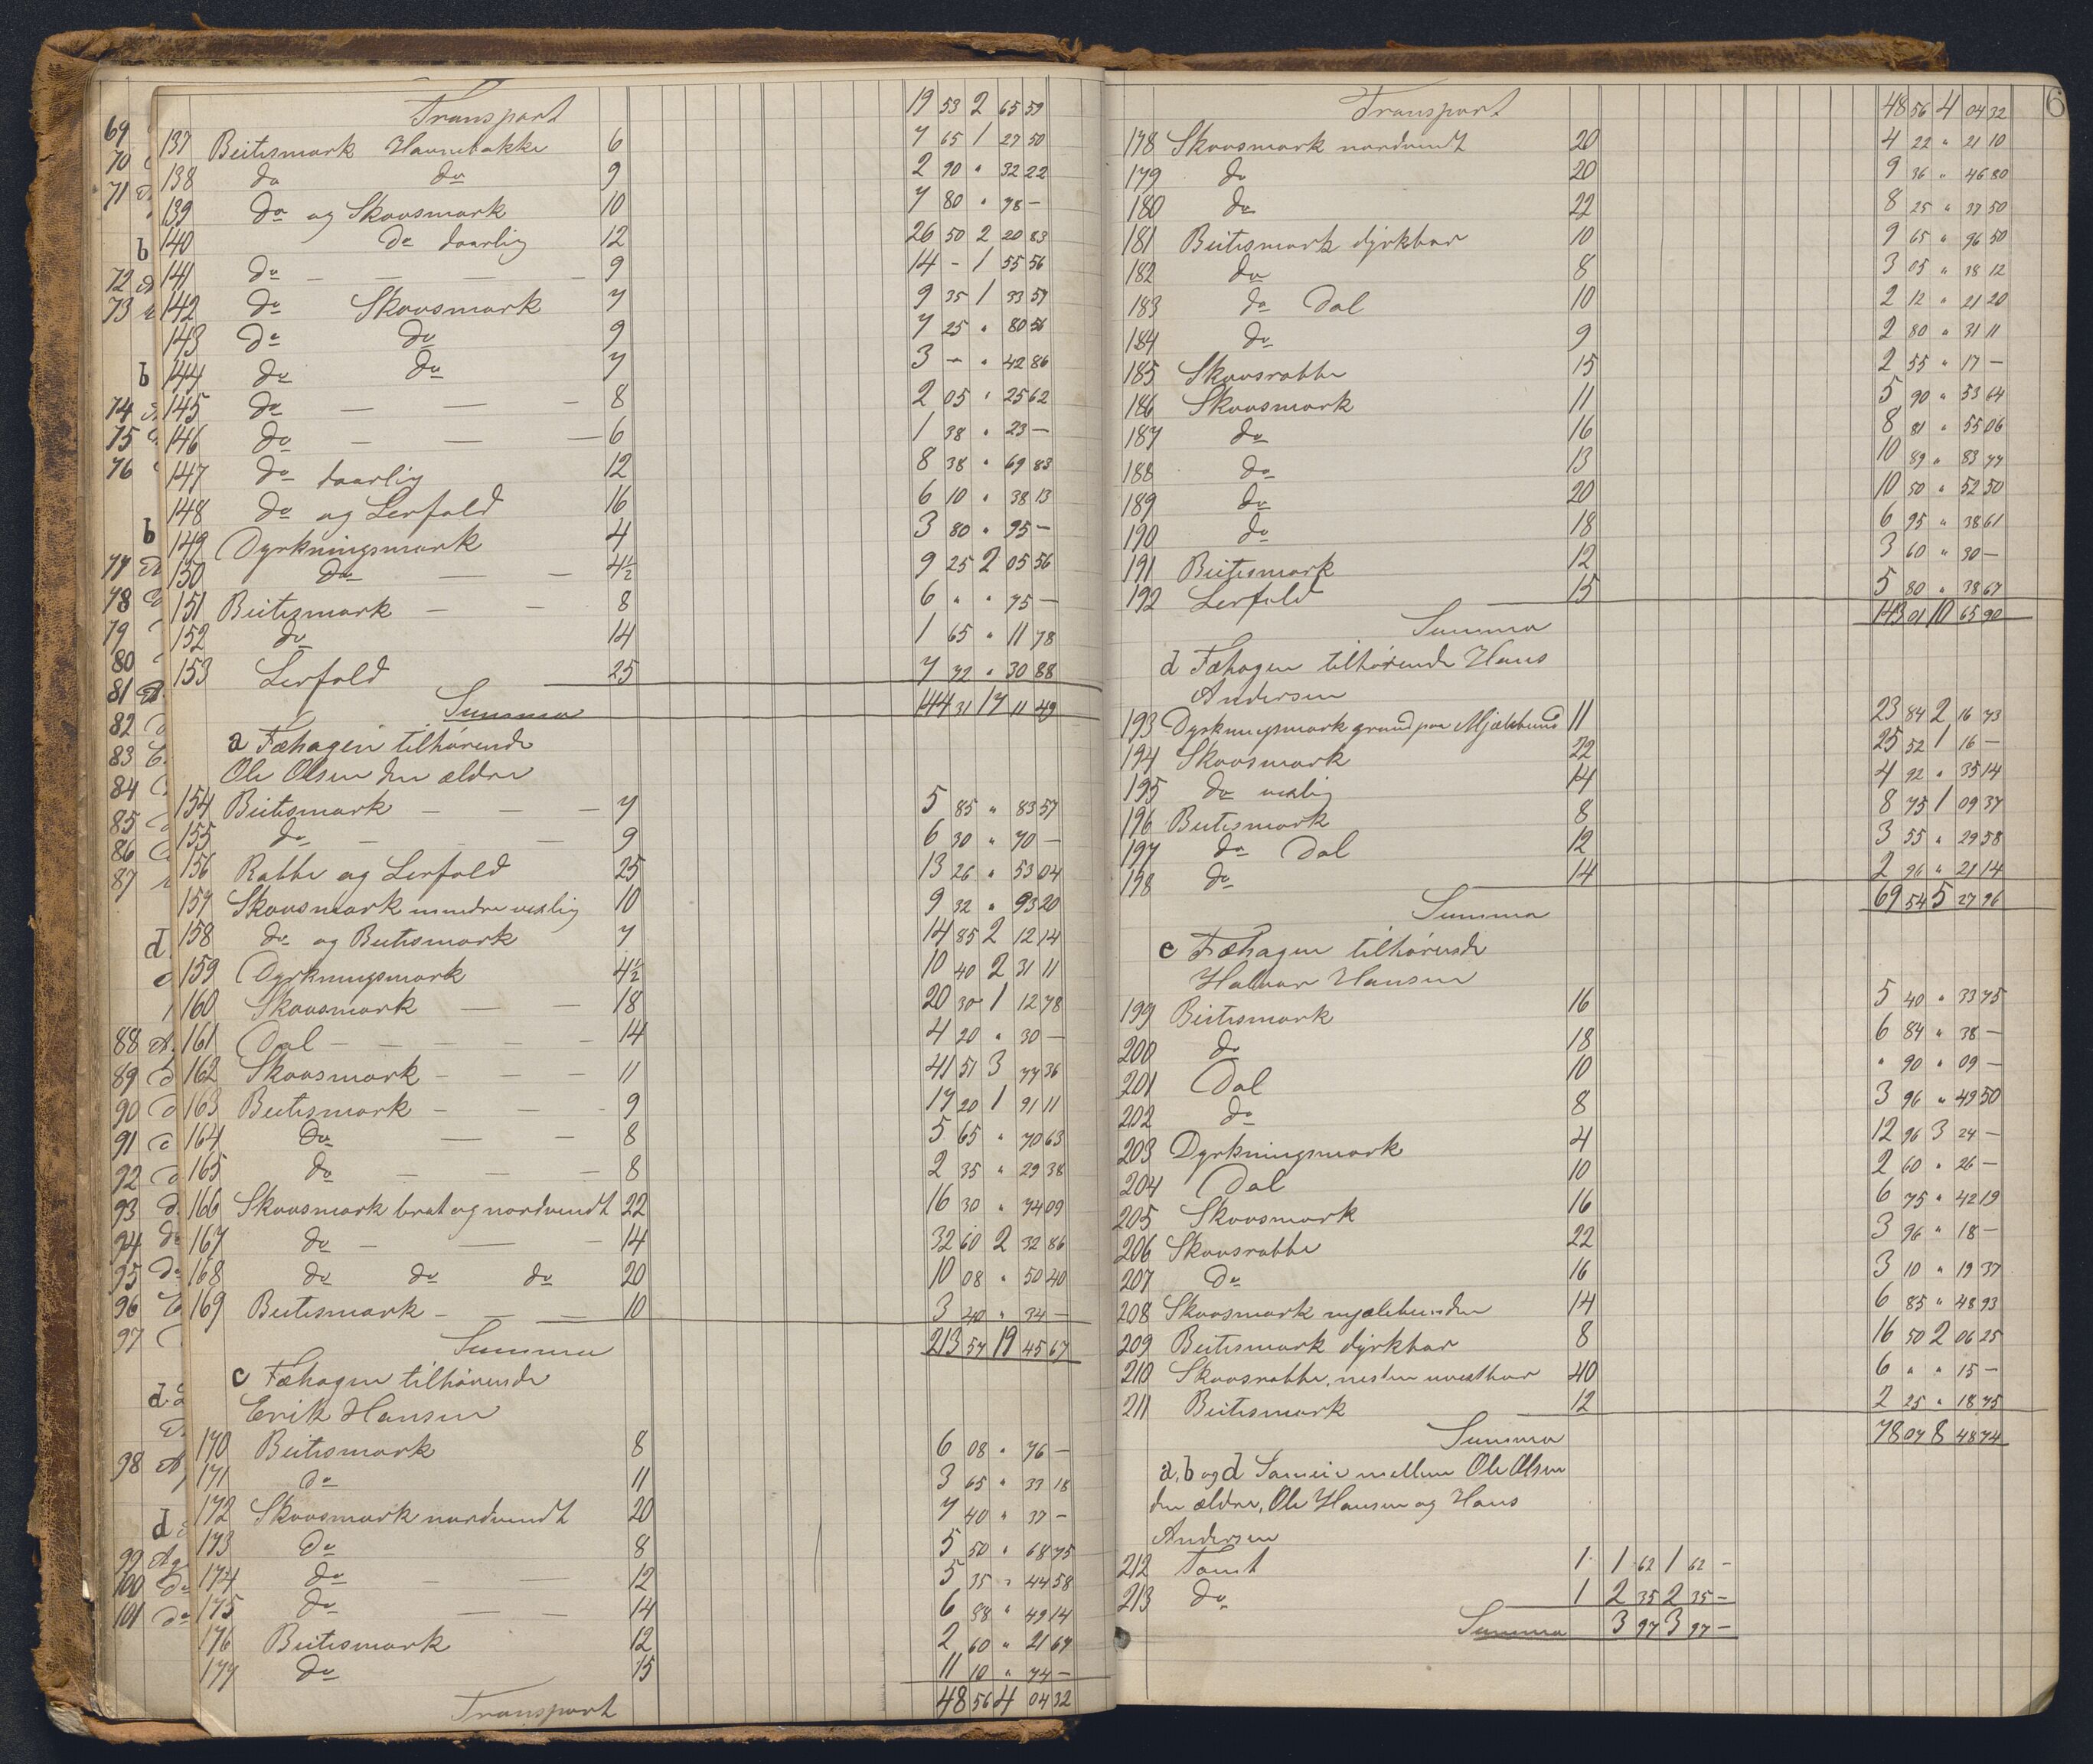 Transport 19 53 2 65 59
137 Beitesmark Havnebakke 6 7 65 1 27 50
138 do do 9 2 90 " 32 22
139 do og Skovsmark 10 7 80 " 78 —
140 do daarlig 12 26 50 2 20 83
141 do — — — — 9 14 - 1 55 56
142 do Skovsmark 7 9 35 1 33 57
143 do do 9 7 25 " 80 56
144 do do 7 3 — " 42 86
145 do — — — 8 2 05 " 25 62
146 do — — — 6 1 38 " 23 —
147 do daarlig 12 8 38 " 69 83
148 do og Lerfald 16 6 10 " 38 13
149 Dyrkningsmark 4 3 80 " 95 —
150 do — — 4½ 9 25 2 05 56
151 Beitesmark — — 8 6 " " 75 —
152 do 14 1 65 " 11 78
153 Lerfald 25 7 72 " 30 88
Summa 144 31 17 11 49
a Fæhagen tilhørende
Ole Olsen den ældre
154 Beitesmark — — — 7 5 85 " 83 57
155 do — — — 9 6 30 " 70 —
156 Rabbe og Lerfald 25 13 26 " 53 04
157 Skovsmark mindre vexlig 10 9 32 " 93 20
158 do og Beitesmark 7 14 85 2 12 14
159 Dyrkningsmark 4½ 10 40 2 31 11
160 Skovsmark — — 18 20 30 1 12 78
161 Dal — — — — — 14 4 20 " 30 —
162 Skovsmark — — — 11 41 51 3 77 36
163 Beitesmark — — - 9 17 20 1 91 11
164 do — — 8 5 65 " 70 63
165 do — — — 8 2 35 " 29 38
166 Skovsmark brat og nordvendt 22 16 30 " 74 09
167 do — — — 14 32 60 2 32 86
168 do do do 20 10 08 " 50 40
169 Beitesmark — — — 10 3 40 " 34 —
Summa 213 57 19 45 67
c Fæhagen tilhørende
Erik Hansen
170 Beitesmark 8 6 08 " 76 —
171 do 11 3 65 " 33 18
172 Skovsmark nordvendt 20 7 40 " 37 —
173 do 8 5 50 " 68 75
174 do — — 12 5 35 " 44 58
175 do — — 14 6 88 " 49 14
176 Beitesmark 12 2 60 " 21 67
177 do 15 11 10 " 74 —
Transport 48 56 4 04 32
69
70
71
b
72
73
b
74
75
76
b
77
78
79
80
81
82
83
84
85
86
87
d
88
89
90
91
92
93
94
95
96
97
d
98
d
99
100
101
6
Transport 48 56 4 04 32
178 Skovsmark nordvendt 20 4 22 " 21 10
179 do 20 9 36 " 46 80
180 do 22 8 25 " 37 50
181 Beitesmark dyrkbar 10 9 65 " 96 50
182 do 8 3 05 " 38 12
183 do Dal 10 2 12 " 21 20
184 do 9 2 80 " 31 11
185 Skovsrabbe 15 2 55 " 17 —
186 Skovsmark 11 5 90 " 53 64
187 do 16 8 81 " 55 06
188 do 13 10 89 " 83 77
189 do 20 10 50 " 52 50
190 do 18 6 95 " 38 61
191 Beitesmark 12 3 60 " 30 —
192 Lerfald 15 5 80 " 38 67
Summa 143 01 10 65 90
d Fæhagen tilhørende Hans
Andersen
193 Dyrkningsmark grund paa Mjælebund 11 23 84 2 16 73
194 Skovsmark 22 25 52 1 16 —
195 do vexlig 14 4 92 " 35 14
196 Beitesmark 8 8 75 1 09 37
197 do Dal 12 3 55 " 29 58
198 do 14 2 96 " 21 14
Summa 69 54 5 27 96
e Fæhagen tilhørende
Halvor Hansen
199 Beitesmark 16 5 40 " 33 75
200 do 18 6 84 " 38 —
201 Dal 10 " 90 " 09 —
202 do 8 3 96 " 49 50
203 Dyrkningsmark 4 12 96 3 24 —
204 Dal 10 2 60 " 26 —
205 Skovsmark 16 6 75 " 42 19
206 Skovsrabbe 22 3 96 " 18 —
207 do 16 3 10 " 19 37
208 Skovsmark mjælebunden 14 6 85 " 48 93
209 Beitesmark dyrkbar 8 16 50 2 06 25
210 Skovsrabbe, nesten uvextbar 40 6 " " 15 —
211 Beitesmark 12 2 25 " 18 75
Summa 78 07 8 48 74
a, b og d Sameie mellem Ole Olsen
den ældre, Ole Hansen og Hans
Andersen
212 Tomt 1 1 62 1 62 —
213 do 1 2 35 2 35 —
Summa 3 97 3 97 —